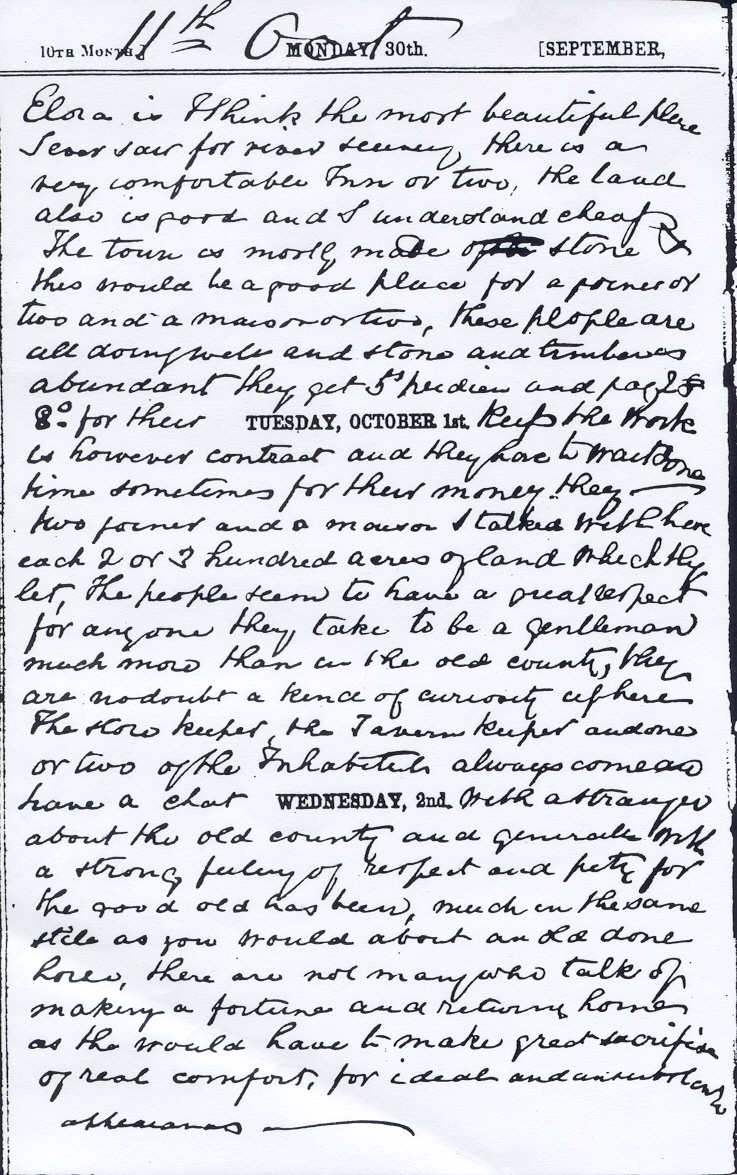 11th Oct
10TH MONTH.] MONDAY, 30th. [SEPTEMBER,
Elora is I think the most beautiful place
I ever saw for river scenery, there is a
very comfortable Inn or two, the land
also is good and I understand cheap &
The town is mostly made of stone
this would be a good place for a joiner or
two and a mason or two, these people are
all doing well and stone and timber is
abundant they get 5s per diem and pay
for their TUESDAY, OCTOBER 1st. Keep the work
is however contract and they have to wait some
time sometimes for their money. they
two joiner and a mason I talked with have
each 2 or 3 hundred acres of land which they
let, The people seem to have a great respect
for anyone they take to be a gentleman
much more than in the old county, they
are no doubt a kind of curiosity up here
The store keeper, the Tavern keeper and one
or two of the always come and
have a chat WEDNESDAY, 2nd. with a stranger
about the old county and generally with
a strong feeling of respect and pity for
the good old has been, much in the same
stile as you would about an old done
horse, there are not many who talk of
making a fortune and returning home
as the would have to make great sacrifise
of real comfort, for ideal and